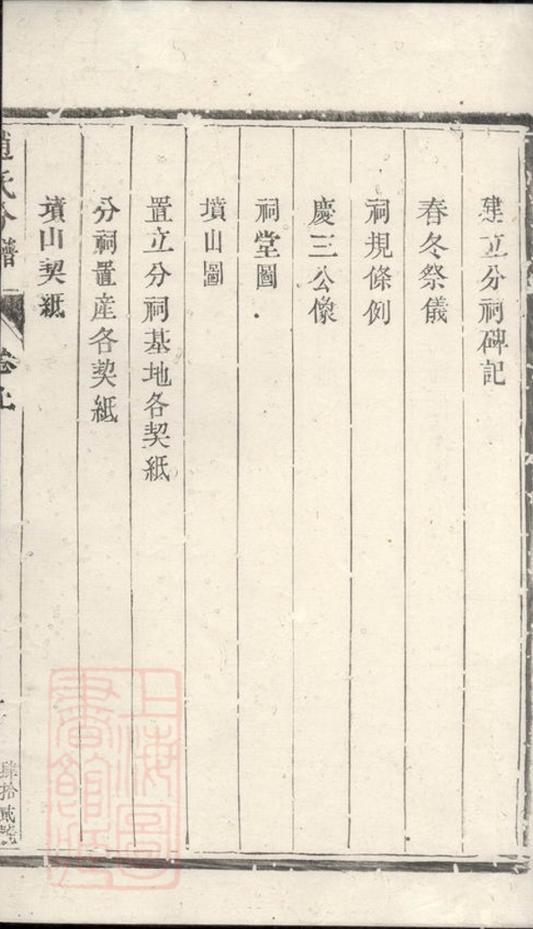 建立分祠碑記
春冬祭儀
祠規條例
慶三公像
祠堂圖
墳山圖
置立分祠基地各契紙
分祠置産各契紙
墳山契紙
趙氏分譜
卷上
肆拾貳號
上海圖書館藏